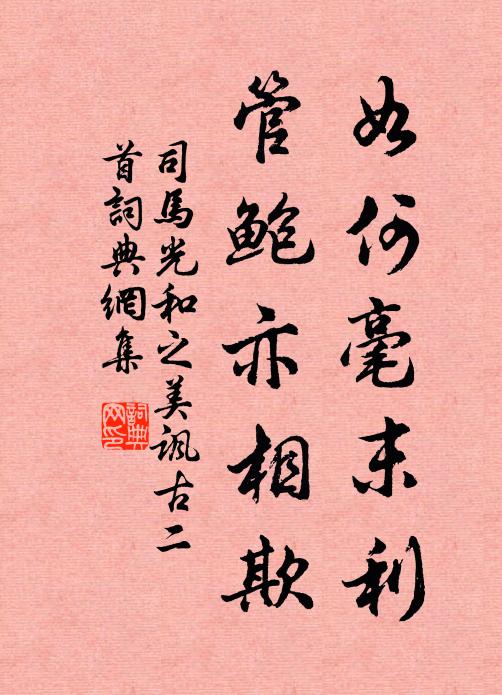 如何毫末利
管鲍亦相欺
司馬光和之美諷古二
首詞典網集
詞典
网印